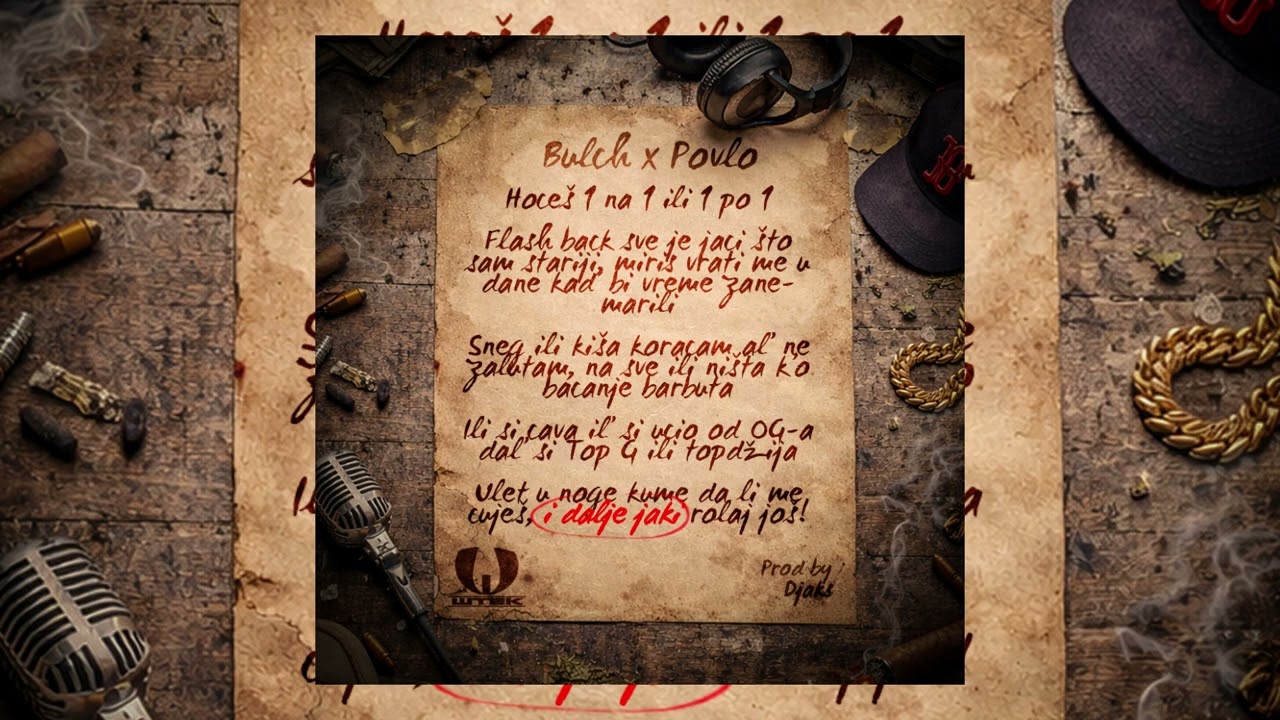 Bulch x Povlo
Hoceš 1 na 1 ili 1 po 1
Flash back sve je jaci što
sam stariji, miris vrati me u
dane kad bi vreme zane-
marili
Sneg ili kiša koracam al' ne
zalutam, na sve ili ništa k'o
bacanje barbuta
Ili si cava il' si ucio od OG-a
dal' si Top G ili topdžija
Ulet u noge kume da li me
cujes, i dalje jaki rolaj još!
Prod by :
Djaks